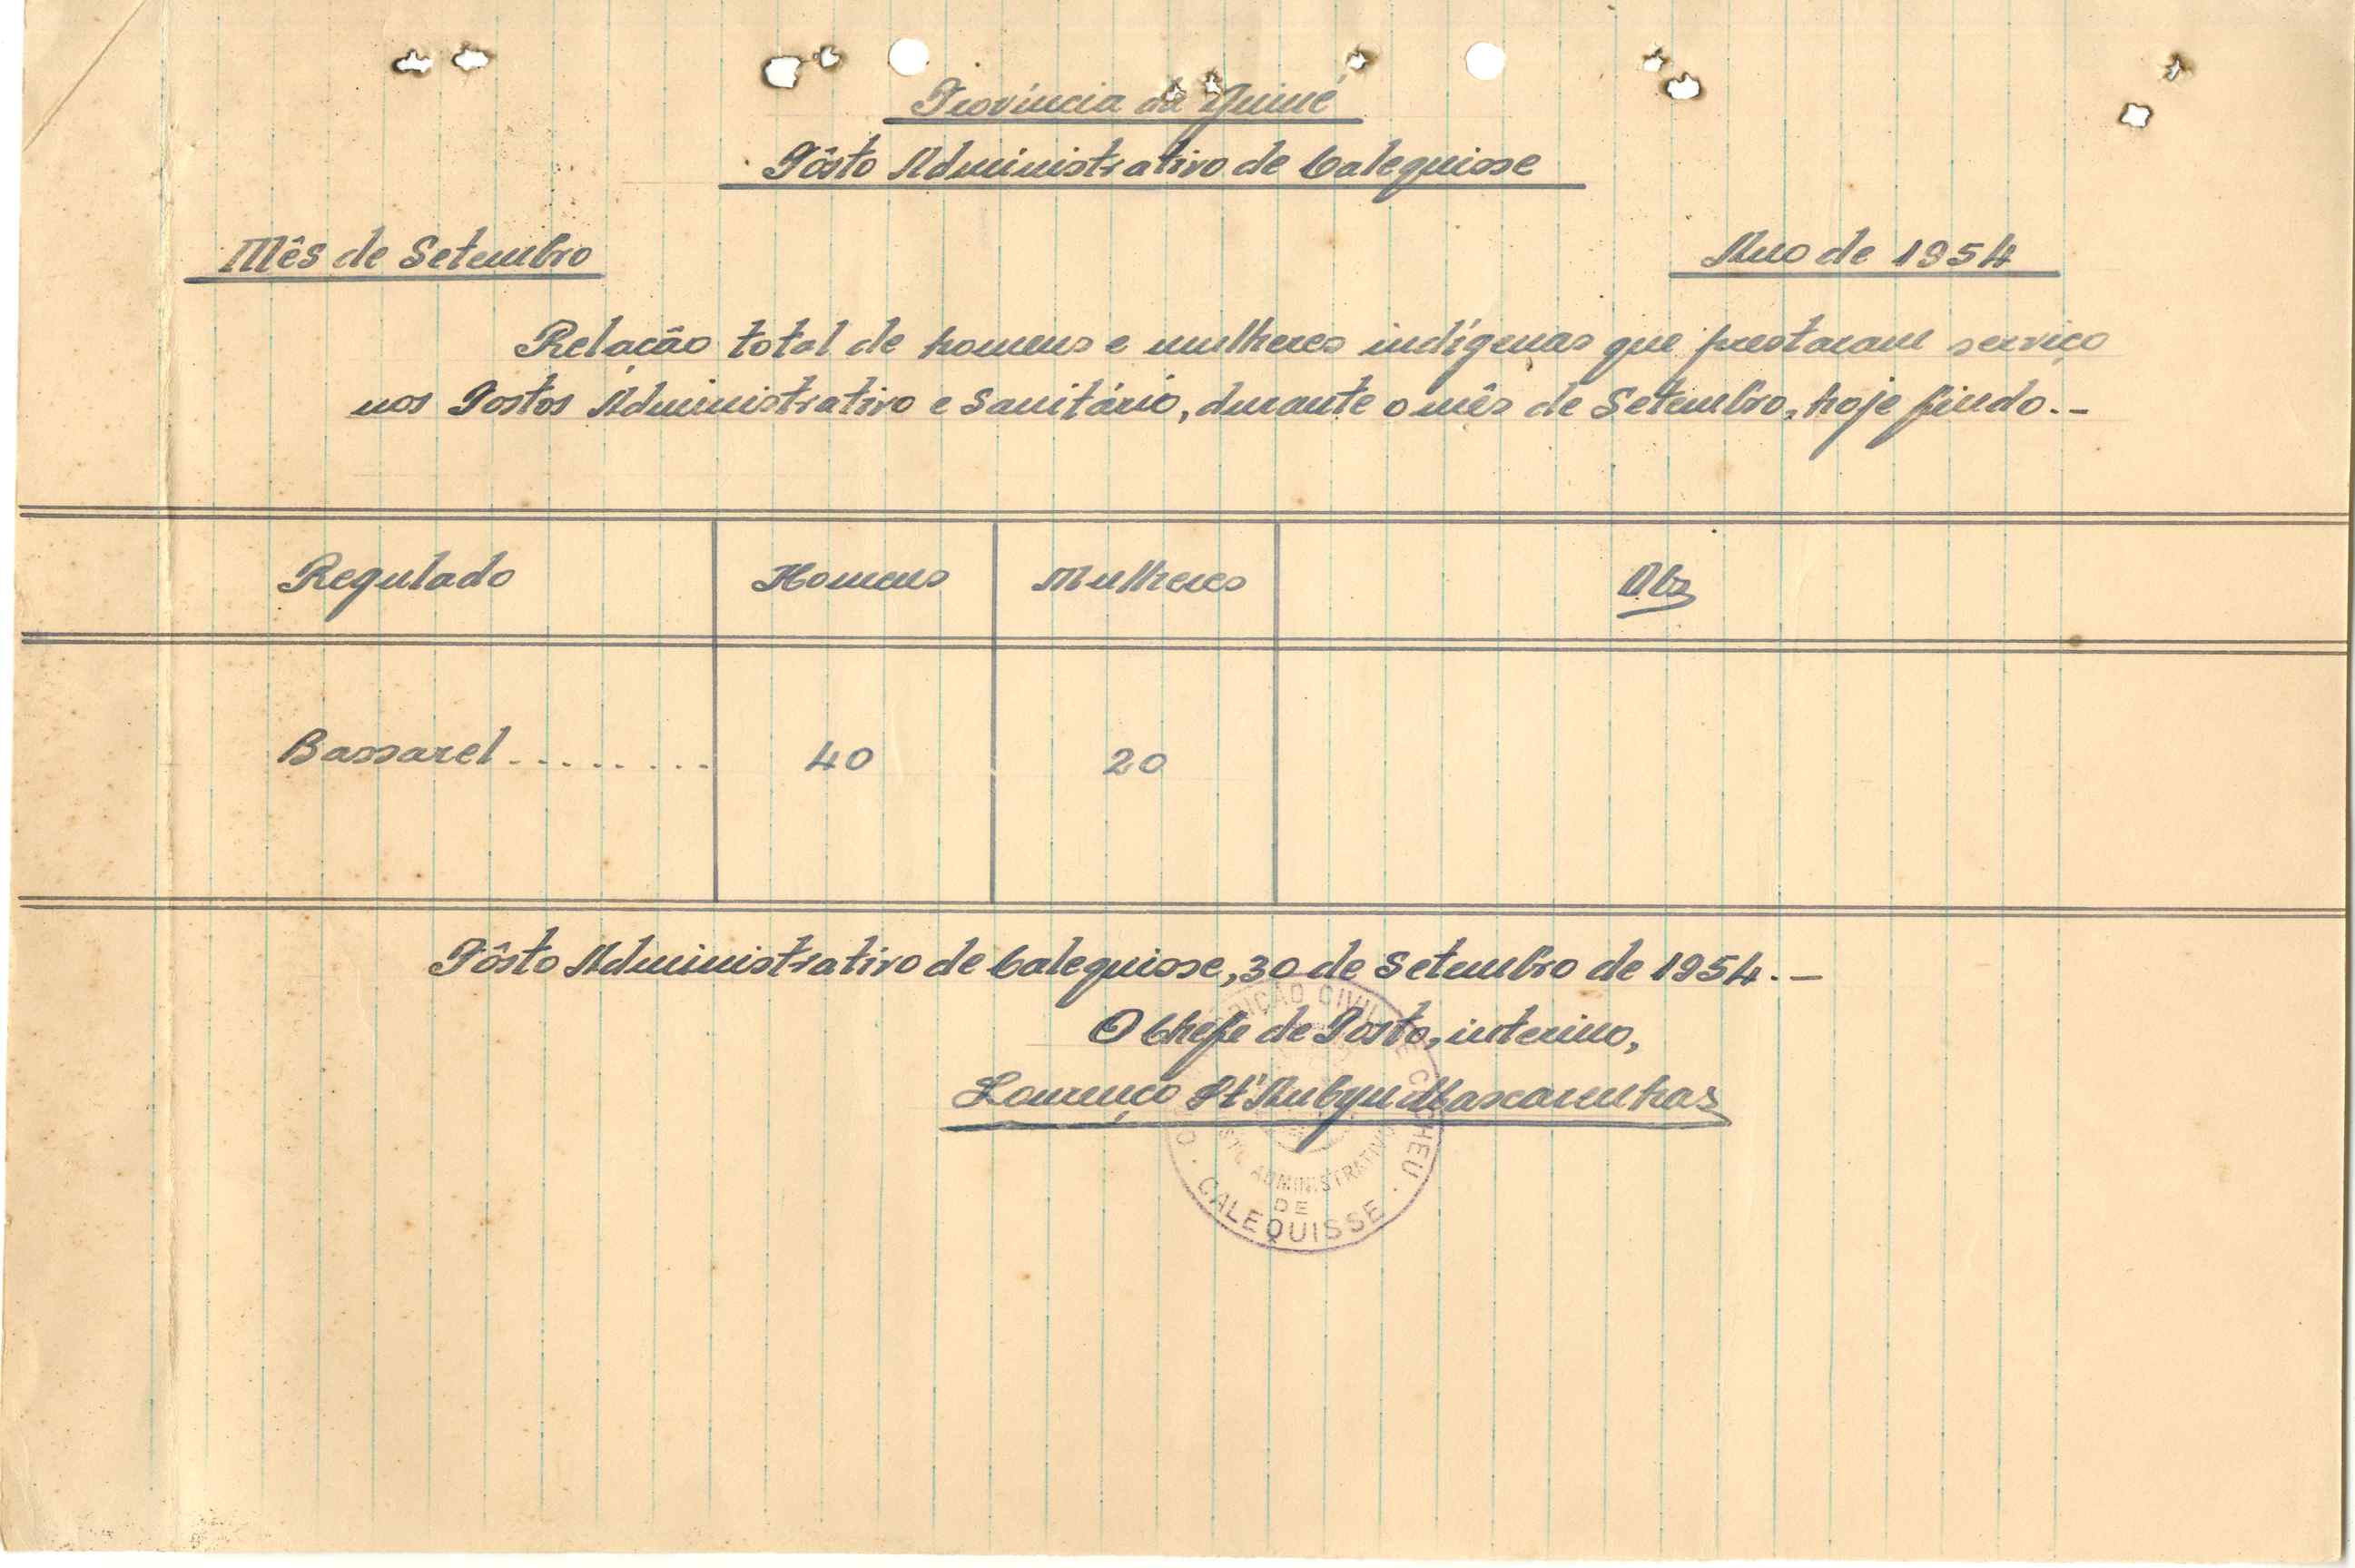 Província da Guiné
Pôsto Administrativo de Calequisse
Mês de Setembro
Ano de 1954
Relação total de homens e mulheres indígenas que prestaram serviço
nos Postos Administrativo e Sanitário, durante o mês de Setembro, hoje findo.-
Regulado Homens Mulheres Obs
Bassarel......... 40 20
Pôsto Administrativo de Calequisse, 30 de Setembro de 1954.-
O Chefe de Posto, interino,
Lourenço Mascarenhas
CIVIL
ADMINISTRATIVO
DE
CALEQUISSE